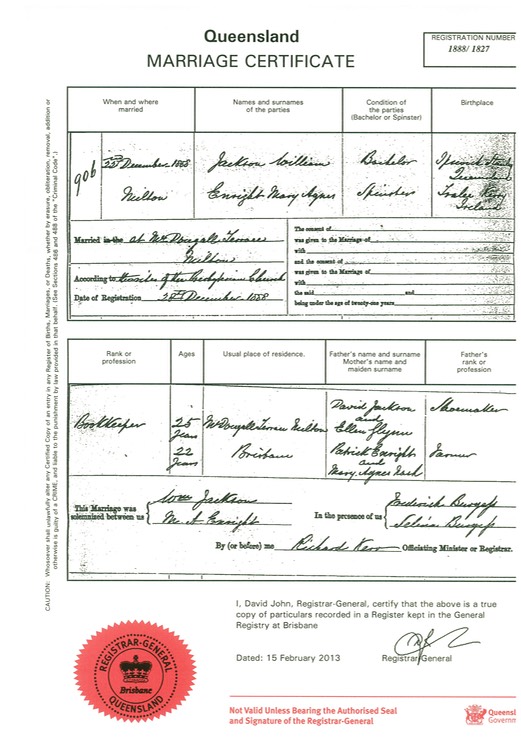 Queensland
MARRIAGE CERTIFICATE
REGISTRATION NUMBER
1888/ 1827
CAUTION: Whosoever shall unlawfully alter any Certified Copy of an entry in any Register of Births, Marriages, or Deaths, whether by erasure, obliteration, removal, addition or
otherwise is guilty of a CRIME, and liable to the punishment by law provided in that behalf. (See Sections 486 and 488 of the "Criminal Code".)
When and where
married
Names and surnames
of the parties
Condition of
the parties
(Bachelor or Spinster)
Birthplace
906
25th December 1888
Milton
Jackson William
Enright Mary Agnes
Bachelor
Spinster
Ipswich
Queensland
Tralee Kerry
Ireland
Married in the at McDougall Terrace
Milton
According to the rites of the Church
Date of Registration 28th December 1888
The consent of
was given to the Marriage of
with
and the consent of
was given to the Marriage of
with
the said and
being under the age of twenty-one years
Rank or
profession
Ages
Usual place of residence.
Father's name and surname
Mother's name and
maiden surname
Father's
rank or
profession
Bookkeeper
25
Years
22
Years
McDougall Terrace Milton
Brisbane
David Jackson
and
Ellen Flynn
Patrick Enright
and
Mary Agnes
Shoemaker
Farmer
This Marriage was
solemnized between us
Wm Jackson
M. A Enright
In the presence of us
Frederick Burgess
Selina Burgess
By (or before) me Richard Kerr Officiating Minister or Registrar.
I, David John, Registrar-General, certify that the above is a true
copy of particulars recorded in a Register kept in the General
Registry at Brisbane
Dated: 15 February 2013
Registrar-General
REGISTRAR-GENERAL
Brisbane
QUEENSLAND
Not Valid Unless Bearing the Authorised Seal
and Signature of the Registrar-General
Queensl
Governm